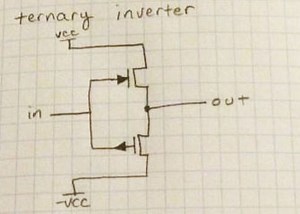 ternary inverter
vcc
in
out
-vcc